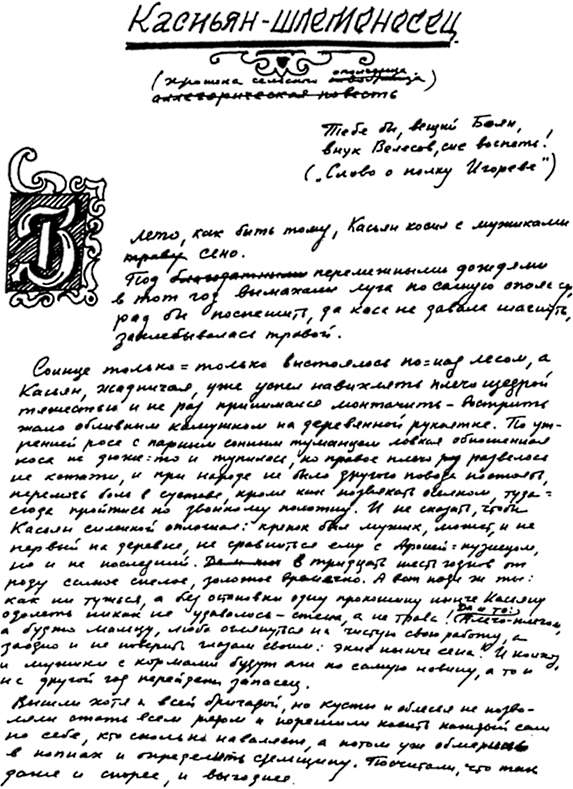 Касиян-шлемоносец
(хроника сельского ополченца)
аллегорическая повесть
Тебе бы, вещий Боян,
внук Велесов, сие воспеть!
(„Слово о полку Игореве")
В лето, как быть тому, Касьян косил с мужиками
траву сено.
Под благодатными перемежными дождями
в тот год вымахали луга по самую опояску,
рад бы поспешить, да коса не давала шагнуть,
захлебывалась травой.
Солнце только=только выстоялось по=над лесом, а
Касьян, жадничая, уже успел навихлять плечо щедрой
тяжестью и не раз принимался монтачить – вострить
жало обливным камушком на деревянной рукоятке. По ут-
ренней росе с парным сонным туманцем ловкая обношенная
коса не дюже=то и тупилась, но правое плечо разболелось
не кстати, и при народе не было другого повода постоять,
перемочь боль в суставе, кроме как позвякать оселком, туда=
сюда пройтись по звонкому полотну. И не сказать, чтобы
Касьян силенкой оплошал: крепок был мужик, может, и не
первый на деревне, не сравниться ему с Афоней=кузнецом,
но и не последний. В тридцать шесть годив от
роду самое спелое, золотое времечко. А вот поди ж ты:
как ни тужься, а без остановки одну прокошину нынче Касьяну
одолеть никак не удавалось – стена, а не трава! Да и то:
а будто малину, любо оглянуться на чистую свою работу, а
заодно и не поверить глазам своим: экие нынче сена! И коням,
и мужики с кормами будут аж по самую новину, а то и
на другой год перейдет запасец.
Вышли хотя и всей бригадой, но кусты и облесье не позво-
ляли стать всем рядом и порешили косить каждый сам
по себе, кто сколько наваляет, а потом уже обмерить
в копнах и определить сдельщину. Посчитали, что так
даже и спорее, и выгоднее.